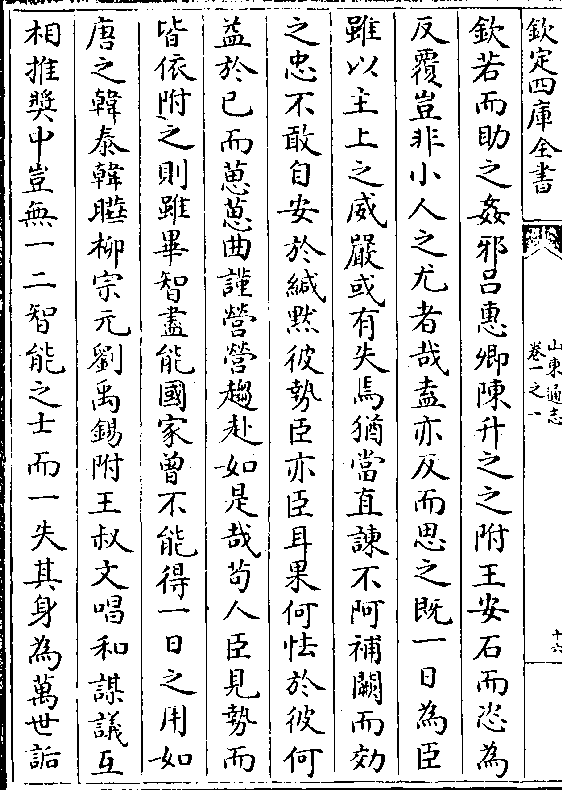 欽定四庫全書
山東通志
卷一之一
十六
欽若而助之姦邪呂惠卿陳升之之附王安石而恣為
反覆豈非小人之尤者哉盍亦反而思之既一日為臣
雖以主上之威嚴或有失焉猶當直諫不阿補闕而効
之忠不敢自安於緘黙彼勢臣亦臣耳果何怯於彼何
益於已而葸葸曲謹營營趨赴如是哉苟人臣見勢而
皆依附之則雖畢智盡能國家曾不能得一日之用如
唐之韓泰韓曄柳宗元劉禹錫附王叔文唱和謀議互
相推奨中豈無一二智能之士而一失其身為萬世詬